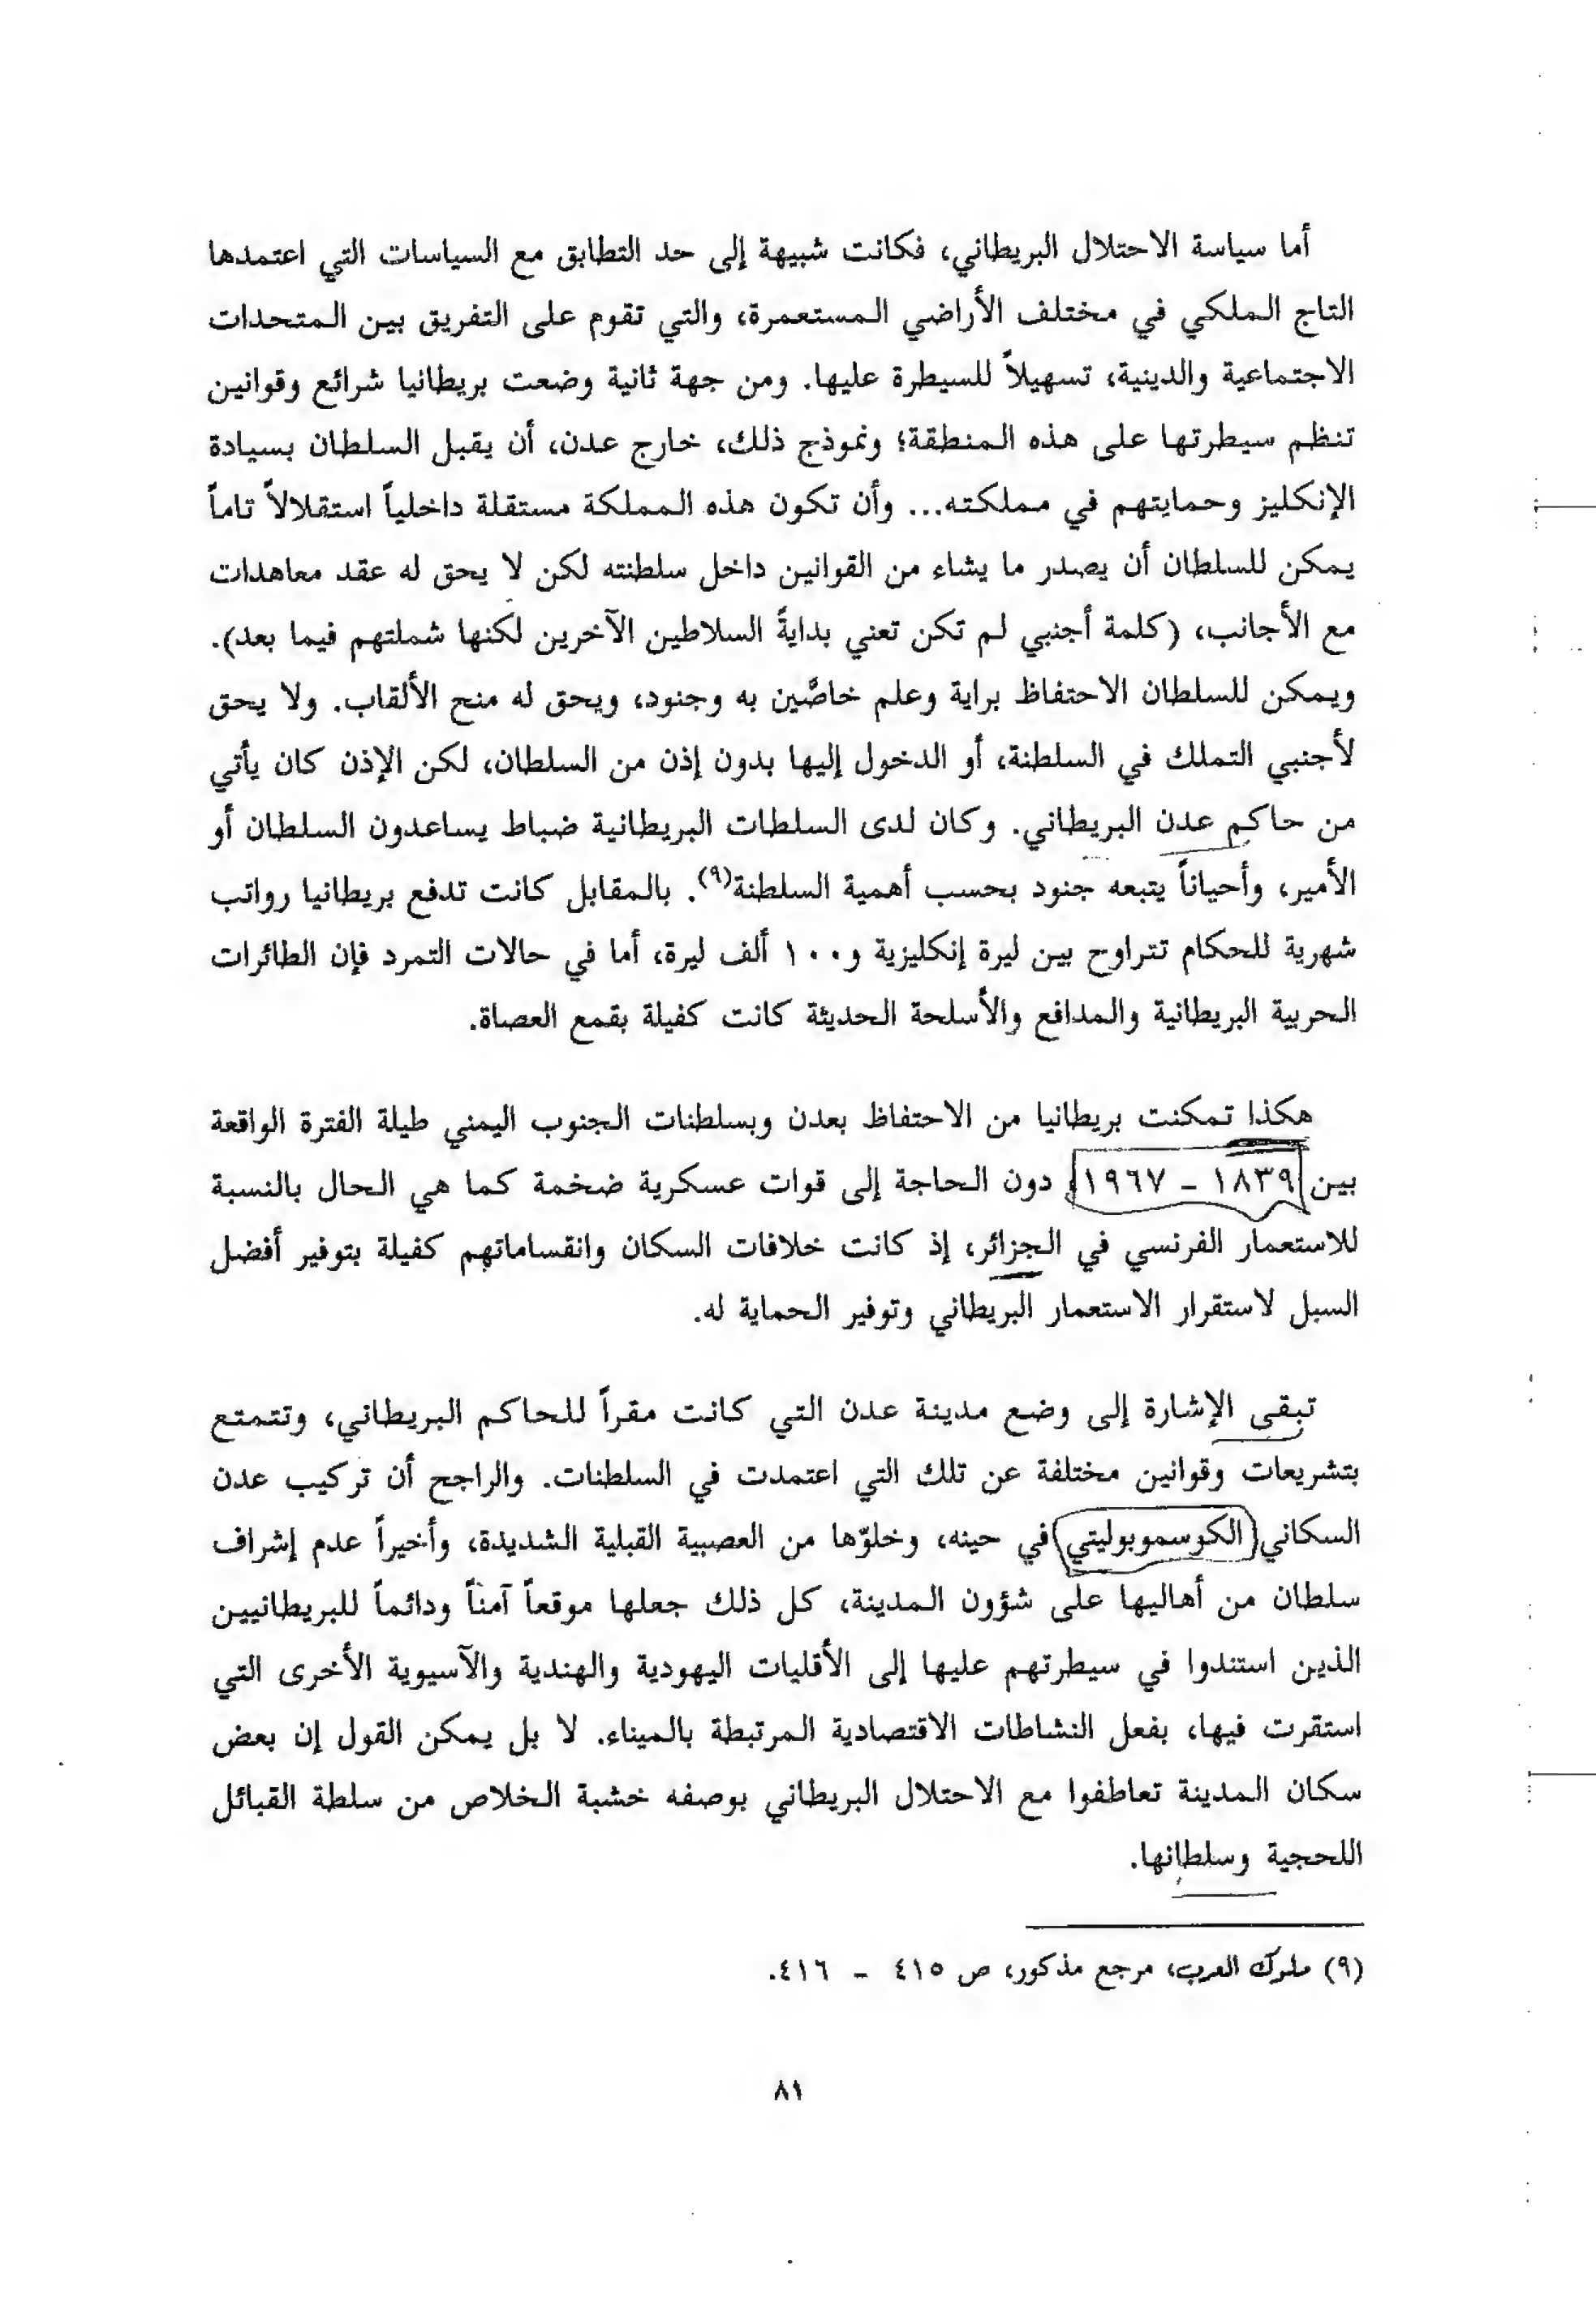 أما سياسة الاحتلال البريطاني، فكانت شبيهة إلى حد التطابق مع السياسات التي اعتمدها
التاج الملكي في مختلف الأراضي المستعمرة، والتي تقوم على التفريق بين المتحدات
الاجتماعية والدينية، تسهيلاً للسيطرة عليها. ومن جهة ثانية وضعت بريطانيا شرائع وقوانين
تنظم سيطرتها على هذه المنطقة؛ ونموذج ذلك، خارج عدن، أن يقبل السلطان بسيادة
الإنكليز وحمايتهم في مملكته... وأن تكون هذه المملكة مستقلة داخلياً استقلالاً تاماً
يمكن للسلطان أن يصدر ما يشاء من القوانين داخل سلطنته لكن لا يحق له عقد معاهدات
مع الأجانب، (كلمة أجنبي لم تكن تعني بدايةً السلاطين الآخرين لكنها شملتهم فيما بعد).
ويمكن للسلطان الاحتفاظ براية وعلم خاصَّين به وجنود، ويحق له منح الألقاب. ولا يحق
لأجنبي التملك في السلطنة، أو الدخول إليها بدون إذن من السلطان، لكن الإذن كان يأتي
من حاكم عدن البريطاني. وكان لدى السلطات البريطانية ضباط يساعدون السلطان أو
الأمير، وأحياناً يتبعه جنود بحسب أهمية السلطنة(٩). بالمقابل كانت تدفع بريطانيا رواتب
شهرية للحكام تتراوح بين ليرة إنكليزية و١٠٠ ألف ليرة، أما في حالات التمرد فإن الطائرات
الحربية البريطانية والمدافع والأسلحة الحديثة كانت كفيلة بقمع العصاة.
هكذا تمكنت بريطانيا من الاحتفاظ بعدن وبسلطنات الجنوب اليمني طيلة الفترة الواقعة
بين ١٨٣٩ - ١٩٦٧، دون الحاجة إلى قوات عسكرية ضخمة كما هي الحال بالنسبة
للاستعمار الفرنسي في الجزائر، إذ كانت خلافات السكان وانقساماتهم كفيلة بتوفير أفضل
السبل لاستقرار الاستعمار البريطاني وتوفير الحماية له.
تبقى الإشارة إلى وضع مدينة عدن التي كانت مقراً للحاكم البريطاني، وتتمتع
بتشريعات وقوانين مختلفة عن تلك التي اعتمدت في السلطنات. والراجح أن تركيب عدن
السكاني الكوسموبوليتي في حينه، وخلوّها من العصبية القبلية الشديدة، وأخيراً عدم إشراف
سلطان من أهاليها على شؤون المدينة، كل ذلك جعلها موقعاً آمناً ودائماً للبريطانيين
الذين استندوا في سيطرتهم عليها إلى الأقليات اليهودية والهندية والآسيوية الأخرى التي
استقرت فيها، بفعل النشاطات الاقتصادية المرتبطة بالميناء. لا بل يمكن القول إن بعض
سكان المدينة تعاطفوا مع الاحتلال البريطاني بوصفه خشبة الخلاص من سلطة القبائل
اللحجية وسلطانها.
(٩) ملوك العرب، مرجع مذكور، ص ٤١٥ - ٤١٦.
٨١